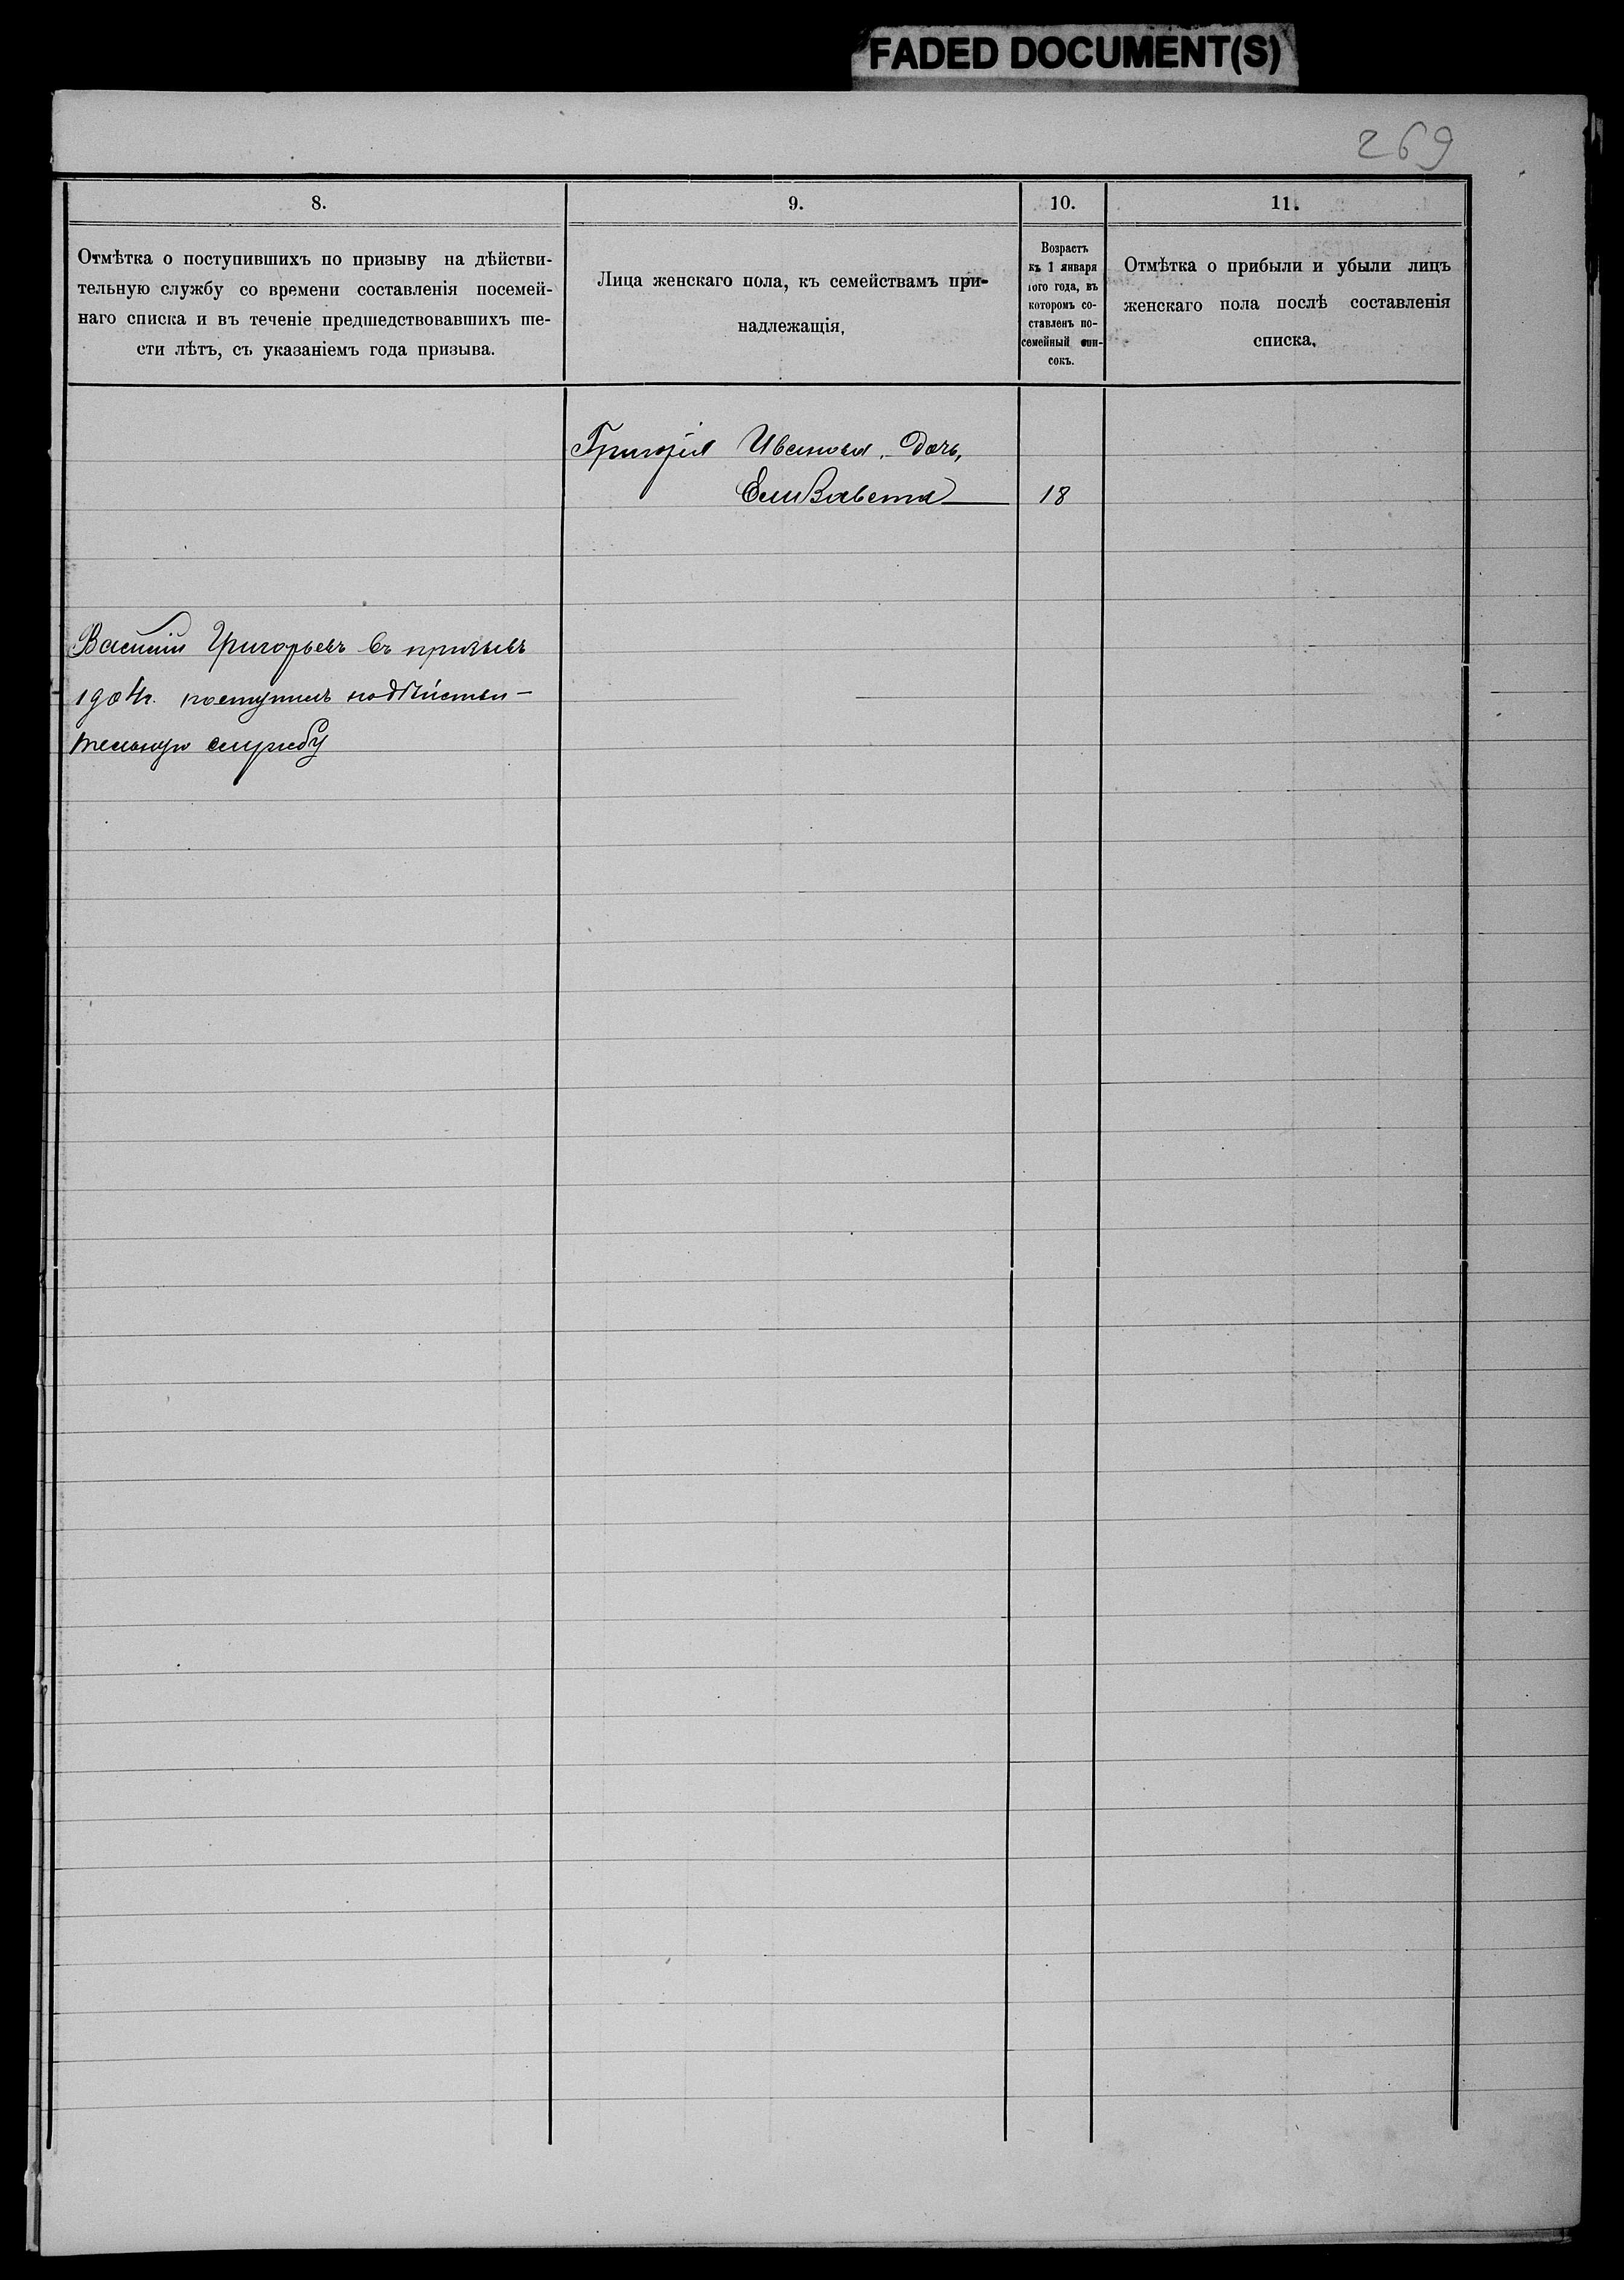 FADED DOCUMENT(S)
269
8.
9.
10.
11.
Отмѣтка о поступившихъ по призыву на дѣйстви-
тельную службу со времени составленія посемей-
наго списка и въ теченіе предшедствовавшихъ ше-
сти лѣтъ, съ указаніемъ года призыва.
Лица женскаго пола, къ семействамъ при-
надлежащія.
Возрастъ
къ 1 января
того года, въ
которомъ со-
ставленъ по-
семейный спи-
сокъ.
Отмѣтка о прибыли и убыли лицъ
женскаго пола послѣ составленія
списка.
Григорія Иванова дочь,
Елизавета
18
Василій Григорьевъ въ призывъ
1904г. поступилъ на дѣйстви-
тельную службу